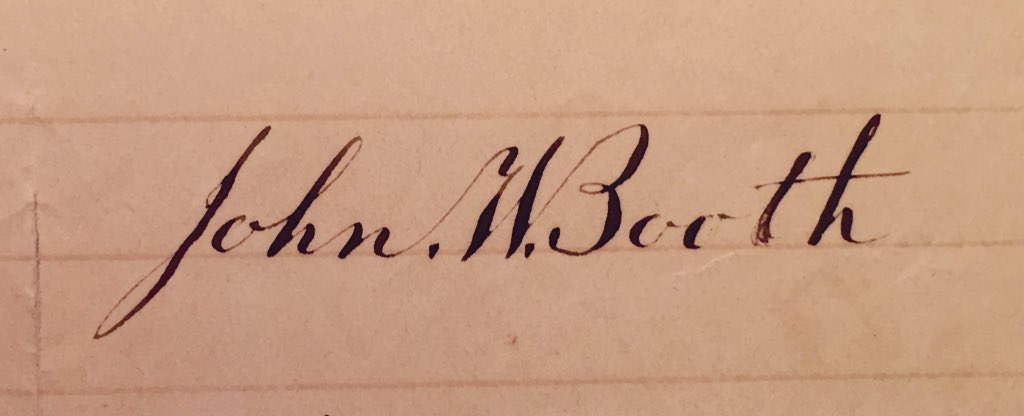 John. W. Booth